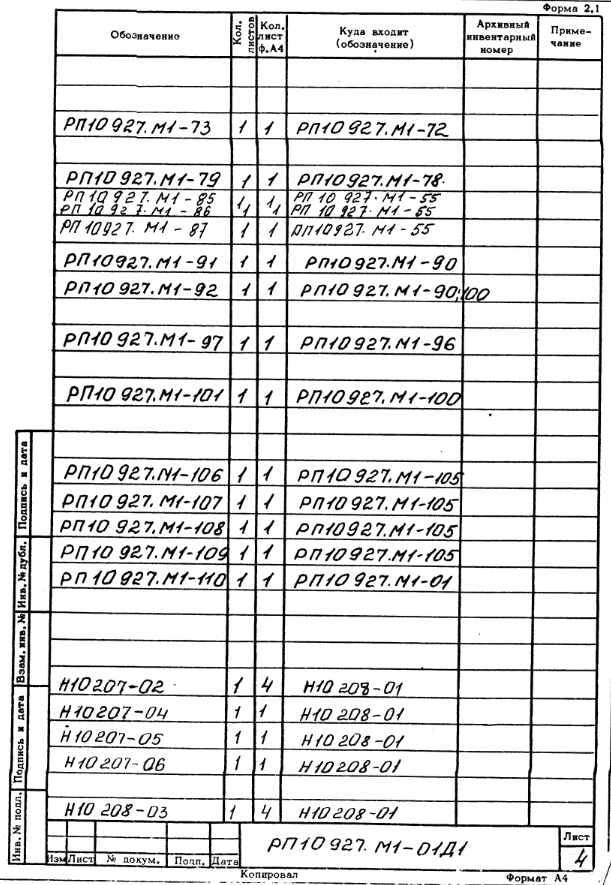 Форма 2.1
Обозначение Кол. листов Кол. лист ф.А4 Куда входит (обозначение) Архивный инвентарный номер Приме-чание
РП10 927.М1-73 1 1 РП10 927.М1-72
РП10 927.М1-79 1 1 РП10 927.М1-78.
РП10 927.М1-85 1 1 РП 10 927.М1-55
РП 10 927.М1-86 1 1 РП 10 927.М1-55
РП 10927.М1-87 1 1 РП10927.М1-55
РП10927.М1-91 1 1 РП10927.М1-90
РП10 927.М1-92 1 1 РП10 927.М1-90;100
РП10 927.М1-97 1 1 РП10 927.М1-96
РП10 927.М1-101 1 1 РП10 927.М1-100
РП10 927.М1-106 1 1 РП10 927.М1-105
РП10 927.М1-107 1 1 РП10 927.М1-105
РП10 927.М1-108 1 1 РП10 927.М1-105
РП10 927.М1-109 1 1 РП10 927.М1-105
РП 10 927.М1-110 1 1 РП10 927.М1-01
Н10 207-02 1 4 Н10 208-01
Н10 207-04 1 1 Н10 208-01
Н10 207-05 1 1 Н10 208-01
Н10 207-06 1 1 Н10 208-01
Н10 208-03 1 4 Н10 208-01
Подпись и дата
Инв. № дубл.
Взам. инв. №
Подпись и дата
Инв. № подл.
Изм Лист № докум. Подп. Дата
РП10 927.М1-01Д1
Лист
4
Копировал Формат А4